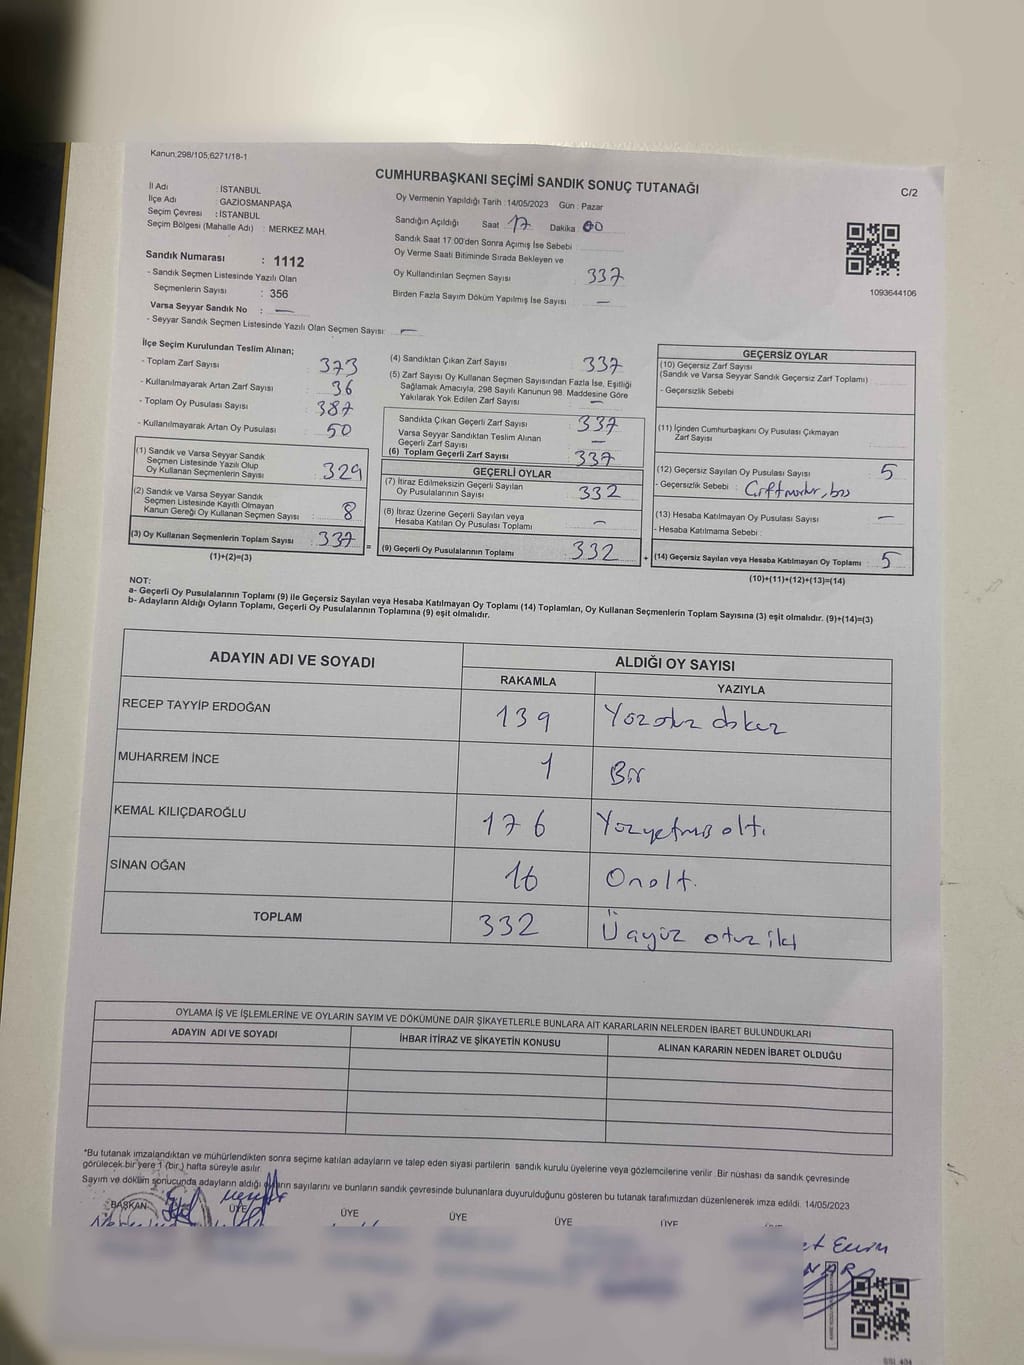 Kanun;298/105;6271/18-1
CUMHURBAŞKANI SEÇİMİ SANDIK SONUÇ TUTANAĞI
C/2
İl Adı : İSTANBUL
İlçe Adı : GAZİOSMANPAŞA
Seçim Çevresi : İSTANBUL
Seçim Bölgesi (Mahalle Adı) : MERKEZ MAH.
Oy Vermenin Yapıldığı Tarih : 14/05/2023 Gün : Pazar
Sandığın Açıldığı Saat 17 Dakika 00
Sandık Saat 17:00'den Sonra Açımış İse Sebebi
Oy Verme Saati Bitiminde Sırada Bekleyen ve
Oy Kullandırılan Seçmen Sayısı 337
Birden Fazla Sayım Döküm Yapılmış İse Sayısı —
1093644106
Sandık Numarası : 1112
- Sandık Seçmen Listesinde Yazılı Olan
Seçmenlerin Sayısı : 356
Varsa Seyyar Sandık No : —
- Seyyar Sandık Seçmen Listesinde Yazılı Olan Seçmen Sayısı: —
İlçe Seçim Kurulundan Teslim Alınan;
- Toplam Zarf Sayısı 373
- Kullanılmayarak Artan Zarf Sayısı 36
- Toplam Oy Pusulası Sayısı 387
- Kullanılmayarak Artan Oy Pusulası 50
(1) Sandık ve Varsa Seyyar Sandık
Seçmen Listesinde Yazılı Olup
Oy Kullanan Seçmenlerin Sayısı 329
(2) Sandık ve Varsa Seyyar Sandık
Seçmen Listesinde Kayıtlı Olmayan
Kanun Gereği Oy Kullanan Seçmen Sayısı 8
(3) Oy Kullanan Seçmenlerin Toplam Sayısı 337
(1)+(2)=(3)
(4) Sandıktan Çıkan Zarf Sayısı 337
(5) Zarf Sayısı Oy Kullanan Seçmen Sayısından Fazla İse, Eşitliği
Sağlamak Amacıyla, 298 Sayılı Kanunun 98. Maddesine Göre
Yakılarak Yok Edilen Zarf Sayısı —
Sandıkta Çıkan Geçerli Zarf Sayısı 337
Varsa Seyyar Sandıktan Teslim Alınan
Geçerli Zarf Sayısı —
(6) Toplam Geçerli Zarf Sayısı 337
GEÇERLİ OYLAR
(7) İtiraz Edilmeksizin Geçerli Sayılan
Oy Pusulalarının Sayısı 332
(8) İtiraz Üzerine Geçerli Sayılan veya
Hesaba Katılan Oy Pusulası Toplamı —
= (9) Geçerli Oy Pusulalarının Toplamı 332 +
GEÇERSİZ OYLAR
(10) Geçersiz Zarf Sayısı
(Sandık ve Varsa Seyyar Sandık Geçersiz Zarf Toplamı)
- Geçersizlik Sebebi
(11) İçinden Cumhurbaşkanı Oy Pusulası Çıkmayan
Zarf Sayısı
(12) Geçersiz Sayılan Oy Pusulası Sayısı 5
- Geçersizlik Sebebi :
(13) Hesaba Katılmayan Oy Pusulası Sayısı —
- Hesaba Katılmama Sebebi :
(14) Geçersiz Sayılan veya Hesaba Katılmayan Oy Toplamı : 5
(10)+(11)+(12)+(13)=(14)
NOT:
a- Geçerli Oy Pusulalarının Toplamı (9) ile Geçersiz Sayılan veya Hesaba Katılmayan Oy Toplamı (14) Toplamları, Oy Kullanan Seçmenlerin Toplam Sayısına (3) eşit olmalıdır. (9)+(14)=(3)
b- Adayların Aldığı Oyların Toplamı, Geçerli Oy Pusulalarının Toplamına (9) eşit olmalıdır.
ADAYIN ADI VE SOYADI
ALDIĞI OY SAYISI
RAKAMLA YAZIYLA
RECEP TAYYİP ERDOĞAN 139 Yüzotuz dokuz
MUHARREM İNCE 1 Bir
KEMAL KILIÇDAROĞLU 176 Yüzyetmiş altı
SİNAN OĞAN 16 Onaltı
TOPLAM 332 Üçyüz otuz iki
OYLAMA İŞ VE İŞLEMLERİNE VE OYLARIN SAYIM VE DÖKÜMÜNE DAİR ŞİKAYETLERLE BUNLARA AİT KARARLARIN NELERDEN İBARET BULUNDUKLARI
ADAYIN ADI VE SOYADI İHBAR İTİRAZ VE ŞİKAYETİN KONUSU ALINAN KARARIN NEDEN İBARET OLDUĞU
*Bu tutanak imzalandıktan ve mühürlendikten sonra seçime katılan adayların ve talep eden siyasi partilerin sandık kurulu üyelerine veya gözlemcilerine verilir. Bir nüshası da sandık çevresinde
görülecek bir yere 1 (bir) hafta süreyle asılır.
Sayım ve döküm sonucunda adayların aldığı oyların sayılarını ve bunların sandık çevresinde bulunanlara duyurulduğunu gösteren bu tutanak tarafımızdan düzenlenerek imza edildi. 14/05/2023
BAŞKAN ÜYE ÜYE ÜYE ÜYE ÜYE